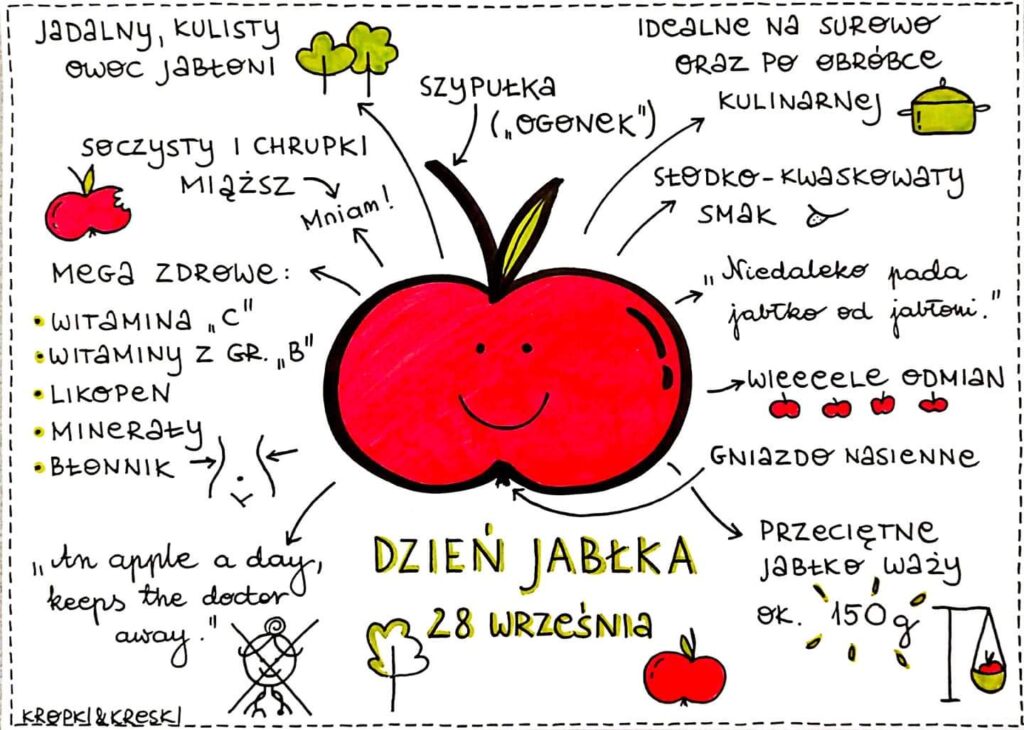 JADALNY, KULISTY
OWOC JABŁONI
SZYPUŁKA
(„OGONEK")
IDEALNE NA SUROWO
ORAZ PO OBRÓBCE
KULINARNEJ
SOCZYSTY I CHRUPKI
MIĄŻSZ
Mniam!
SŁODKO-KWASKOWATY
SMAK
MEGA ZDROWE:
• WITAMINA „C"
• WITAMINY Z GR. „B"
• LIKOPEN
• MINERAŁY
• BŁONNIK
„Niedaleko pada
jabłko od jabłoni."
WIEEEELE ODMIAN
GNIAZDO NASIENNE
„An apple a day,
keeps the doctor
away."
DZIEŃ JABŁKA
28 WRZEŚNIA
PRZECIĘTNE
JABŁKO WAŻY
OK. 150g
KROPKI&KRESKI